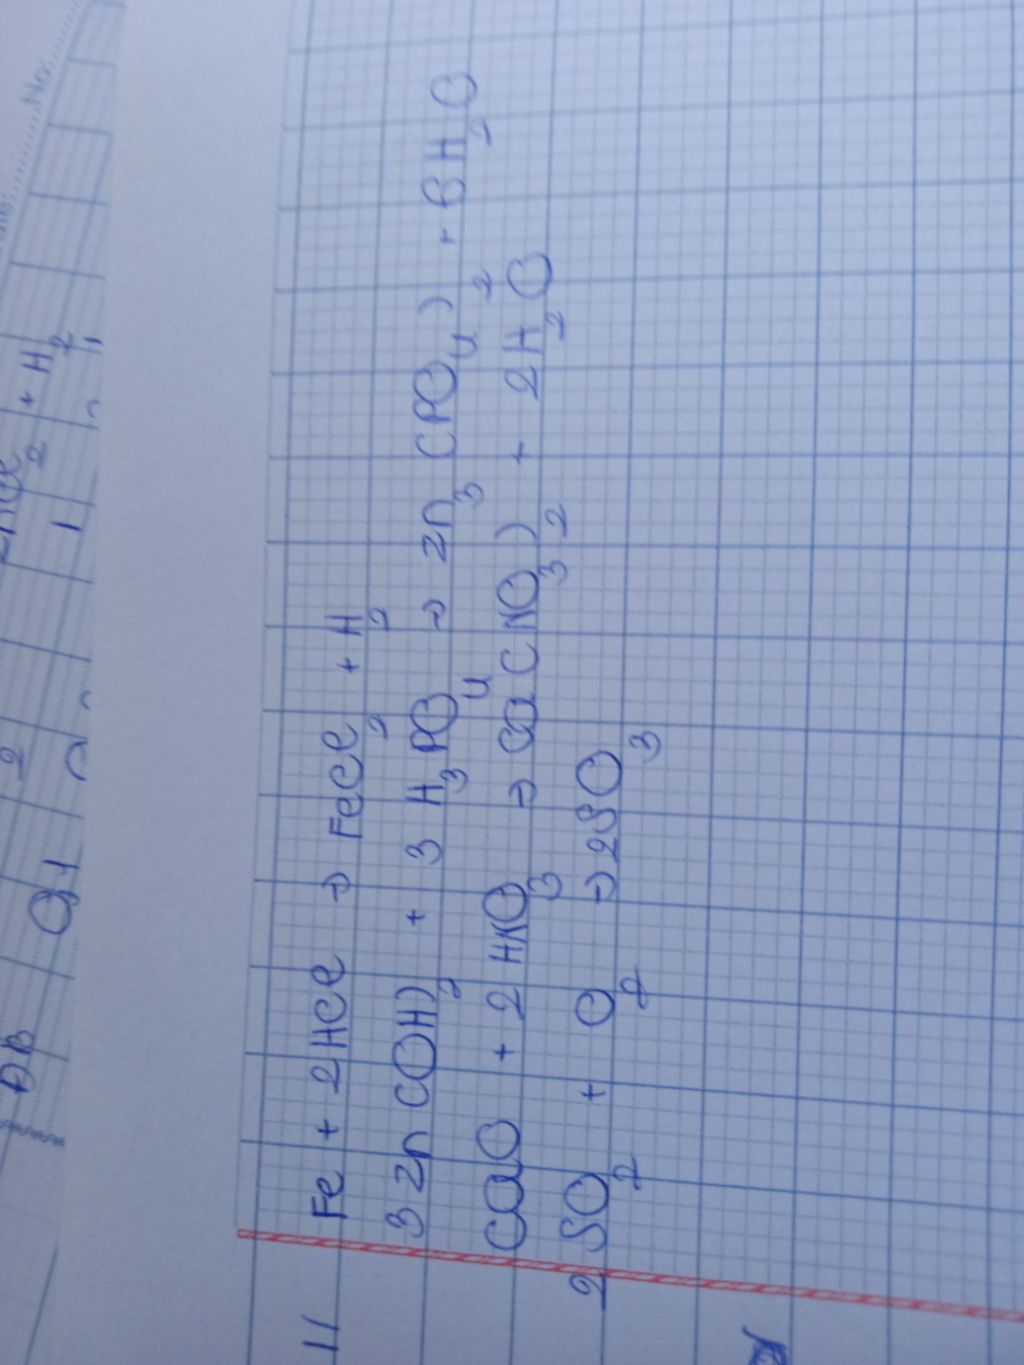 No
2 + H2
2
1
Q1
DB
11
Fe + 2HCl → FeCl2 + H2
3 Zn (OH)2 + 3 H3PO4 → Zn3 (PO4)2 + 6H2O
CaO + 2 HNO3 → Ca(NO3)2 + 2H2O
2 SO2 + O2 → 2SO3